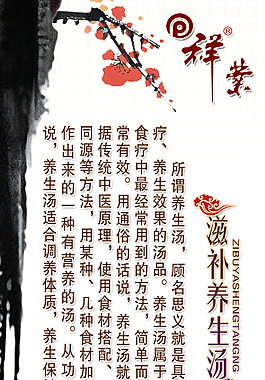 祥紫®
滋补养生汤
ZIBUYASHENGTANGNG
所谓养生汤，顾名思义就是具
疗、养生效果的汤品。养生汤属于
食疗中最经常用到的方法，简单而
常有效。用通俗的话说，养生汤就
据传统中医原理，使用食材搭配、
同源等方法，用某种、几种食材加
作出来的一种有营养的汤。从功
说，养生汤适合调养体质，养生保